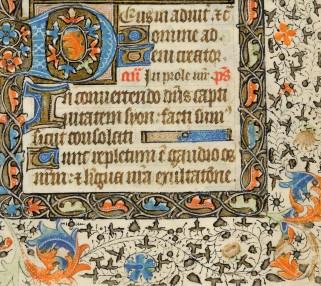 Deus in adiut. &c
Domine ad
Veni creator
añ In prole mr̃. ps
In convertendo dñs capti
vitatem syon: facti sum9
sicut consolati
Tunc repletum ẽ gaudio os
nr̃m: & ligua nr̃a exultatõne.